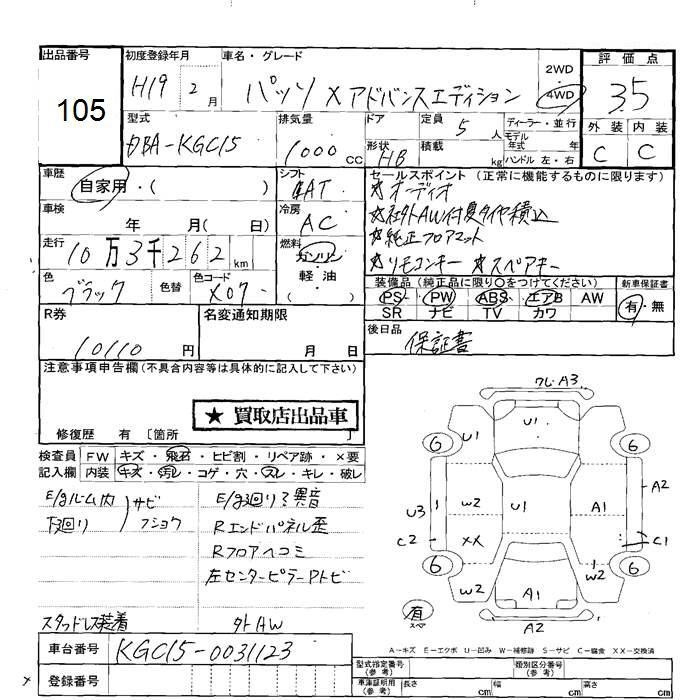 出品番号
105
初度登録年月
H19 2月
車名・グレード
パッソ X アドバンスエディション
2WD
4WD
評価点
3.5
外装 内装
C C
型式
DBA-KGC15
排気量
1000cc
ドア
形状
HB
定員 5人
積載 kg
ディーラー・並行
モデル年式 年
ハンドル 左・右
車歴
自家用・( )
シフト
4AT
セールスポイント (正常に機能するものに限ります)
☆オーディオ
☆社外AW付夏タイヤ積込
☆純正フロアマット
☆リモコンキー ☆スペアキー
車検
年 月(日)
冷房
AC
走行
10万3千262km
燃料
ガソリン
軽・油
( )
色
ブラック
色替
色コード
X07-
装備品(純正品に限り○をつけてください)
PS・PW・ABS・エアB AW
SR ナビ TV カワ
新車保証書
有・無
R券
10110円
名変通知期限
月 日
後日品
保証書
注意事項申告欄(不具合内容等は具体的に記入して下さい)
★ 買取店出品車
修復歴 有 〔箇所
検査員 FW キズ・飛石・ヒビ割・リペア跡・×要
記入欄 内装 キズ・汚レ・コゲ・穴・スレ・キレ・破レ
E/gルーム内
下廻り
サビ
フショク
E/g廻り?異音
Rエンドパネル歪
Rフロアヘコミ
左センターピラーPトビ
スタッドレス装着 外AW
車台番号 KGC15-0031123
登録番号
ワレ・A3
U1
6
U1
6
A2
U3
W2
U1
A1
C2
XX
C1
6
W2
W2
6
A1
有
スペア
A2
A-キズ E-エクボ U-凹み W-補修跡 S-サビ C-腐食 XX-交換済
型式指定番号(参考)
類別区分番号(参考)
車庫証明用(参考)
長さ cm
幅 cm
高さ cm